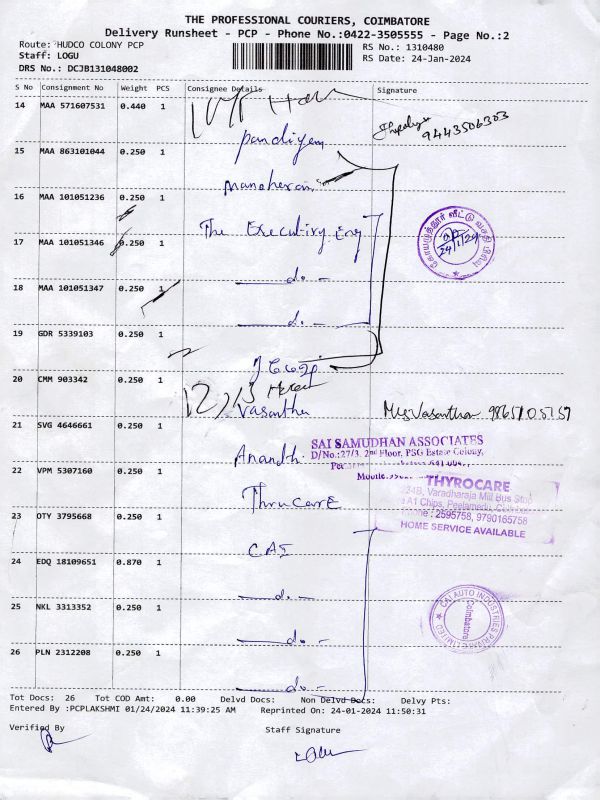 THE PROFESSIONAL COURIERS, COIMBATORE
Delivery Runsheet - PCP - Phone No.:0422-3505555 - Page No.:2
Route: HUDCO COLONY PCP
RS No.: 1310480
Staff: LOGU
RS Date: 24-Jan-2024
DRS No.: DCJB131048002
S No Consignment No Weight PCS Consignee Details Signature
14 MAA 571607531 0.440 1
pandiyan 9443506303
15 MAA 863101044 0.250 1
manoharan
16 MAA 101051236 0.250 1
The Executivy Eng
17 MAA 101051346 0.250 1
do -
18 MAA 101051347 0.250 1
do -
19 GDR 5339103 0.250 1
20 CMM 903342 0.250 1
12/13
Vasantha
21 SVG 4646661 0.250 1
Anandh
SAI SAMUDHAN ASSOCIATES
D/No.:27/3, 2nd Floor, PSG Estate Colony,
22 VPM 5307160 0.250 1
Thrucare
THYROCARE
24B, Varadharaja Mill Bus Stop
A1 Chips, Peelamedu,
Phone : 2595758, 9790165758
HOME SERVICE AVAILABLE
23 OTY 3795668 0.250 1
CAI
24 EDQ 18109651 0.870 1
do -
25 NKL 3313352 0.250 1
do -
CAI AUTO INDUSTRIES PRIVATE LIMITED
Coimbatore
26 PLN 2312208 0.250 1
do -
Tot Docs: 26 Tot COD Amt: 0.00 Delvd Docs: Non Delvd Docs: Delvy Pts:
Entered By :PCPLAKSHMI 01/24/2024 11:39:25 AM Reprinted On: 24-01-2024 11:50:31
Verified By
Staff Signature